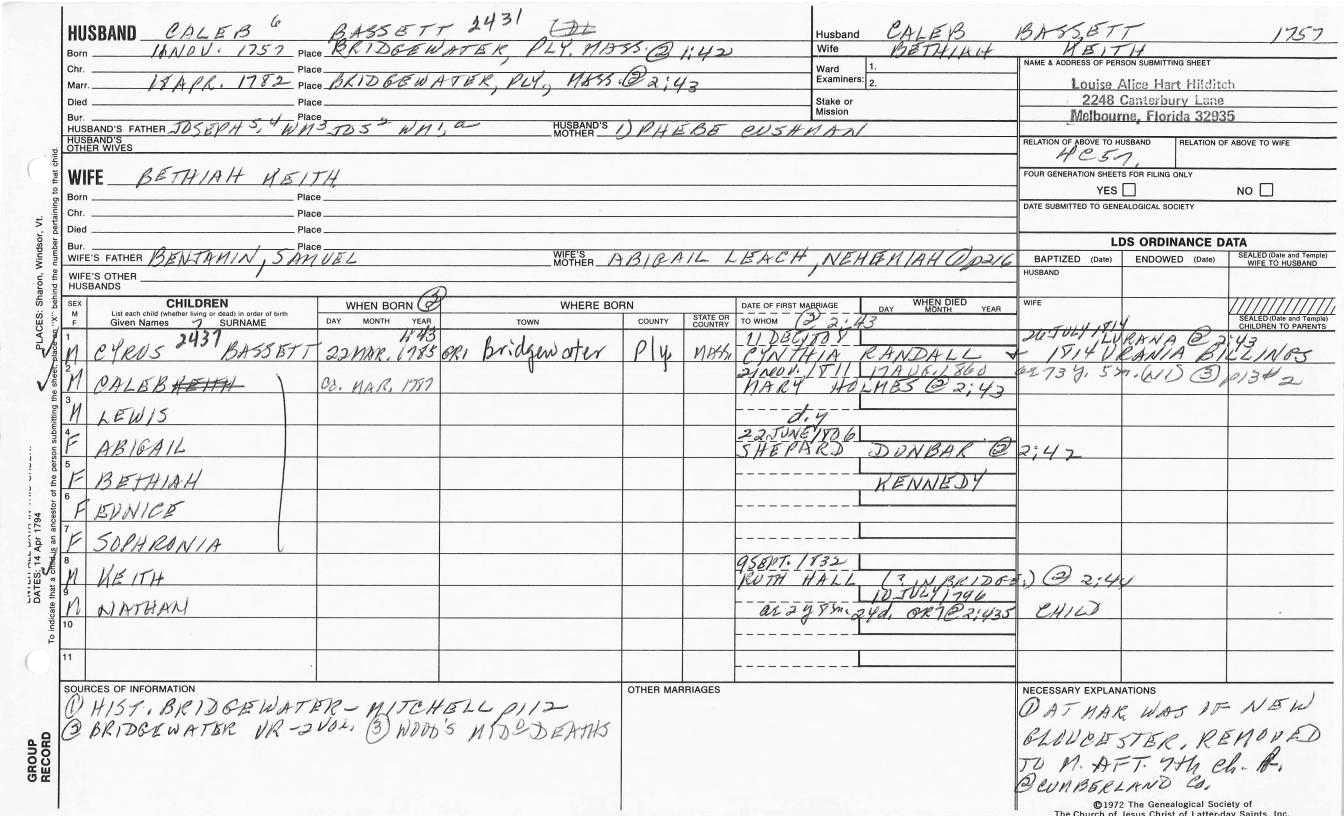 HUSBAND CALEB 6 BASSETT 2431
Born 16 NOV. 1757 Place BRIDGEWATER, PLY, MASS. ② 1:42
Chr. Place
Marr. 18 APR. 1782 Place BRIDGEWATER, PLY., MASS. ② 2:43
Died Place
Bur. Place
HUSBAND'S FATHER JOSEPH 5, 4 WM 3 JOS 2 WM 1, a HUSBAND'S MOTHER 1) PHEBE CUSHMAN
HUSBAND'S OTHER WIVES
WIFE BETHIAH KEITH
Born Place
Chr. Place
Died Place
Bur. Place
WIFE'S FATHER BENJAMIN, SAMUEL WIFE'S MOTHER ABIGAIL LEACH, NEHEMIAH ① p216
WIFE'S OTHER HUSBANDS
Husband CALEB BASSETT 1757
Wife BETHIAH KEITH
Ward Examiners: 1.
2.
Stake or Mission
NAME & ADDRESS OF PERSON SUBMITTING SHEET
Louise Alice Hart Hilditch
2248 Canterbury Lane
Melbourne, Florida 32935
RELATION OF ABOVE TO HUSBAND RELATION OF ABOVE TO WIFE
4C5r,
FOUR GENERATION SHEETS FOR FILING ONLY
YES NO
DATE SUBMITTED TO GENEALOGICAL SOCIETY
LDS ORDINANCE DATA
BAPTIZED (Date) ENDOWED (Date) SEALED (Date and Temple) WIFE TO HUSBAND
HUSBAND
WIFE
SEALED (Date and Temple) CHILDREN TO PARENTS
SEX M F
CHILDREN
List each child (whether living or dead) in order of birth
Given Names SURNAME
WHEN BORN ②
DAY MONTH YEAR
WHERE BORN
TOWN COUNTY STATE OR COUNTRY
DATE OF FIRST MARRIAGE
TO WHOM ② 2:43
WHEN DIED
DAY MONTH YEAR
1 7 2437 1:43 11 DEC 1808 26 JULY 1814 LURANA ② 2:43
M CYRUS BASSETT 22 MAR. 1785 OR1 Bridgewater Ply MASS CYNTHIA RANDALL + 1814 URANIA BILLINGS
2 21 NOV. 1811 17 AUG. 1860 ae 73 y. 5 m. (N1) ③ p13 #2
M CALEB KEITH ca. MAR. 1787 MARY HOLMES ② 2:43
3 d.y
M LEWIS
4 22 JUNE 1806
F ABIGAIL SHEPARD DUNBAR ② 2:42
5
F BETHIAH KENNEDY
6
F EUNICE
7
F SOPHRONIA
8 9 SEPT. 1832
M KEITH RUTH HALL (? IN BRIDGE.) ② 2:44
9 10 JULY 1796
M NATHAN ae 2 y 8 m. 24 d. OR1 ② 2:435 CHILD
10
11
SOURCES OF INFORMATION
① HIST. BRIDGEWATER - MITCHELL p112
② BRIDGEWATER VR - 2 VOL. ③ WOOD'S MIDO DEATHS
OTHER MARRIAGES
NECESSARY EXPLANATIONS
① AT MAR. WAS OF NEW
GLOUCESTER, REMOVED
TO M. AFT. 7th ch. b.
② CUMBERLAND Co.
©1972 The Genealogical Society of
The Church of Jesus Christ of Latter-day Saints, Inc.
PLACES: Sharon, Windsor, Vt.
DATES: 14 Apr 1794
To indicate that a child is an ancestor of the person submitting the sheet, place an "X" behind the number pertaining to that child.
GROUP RECORD